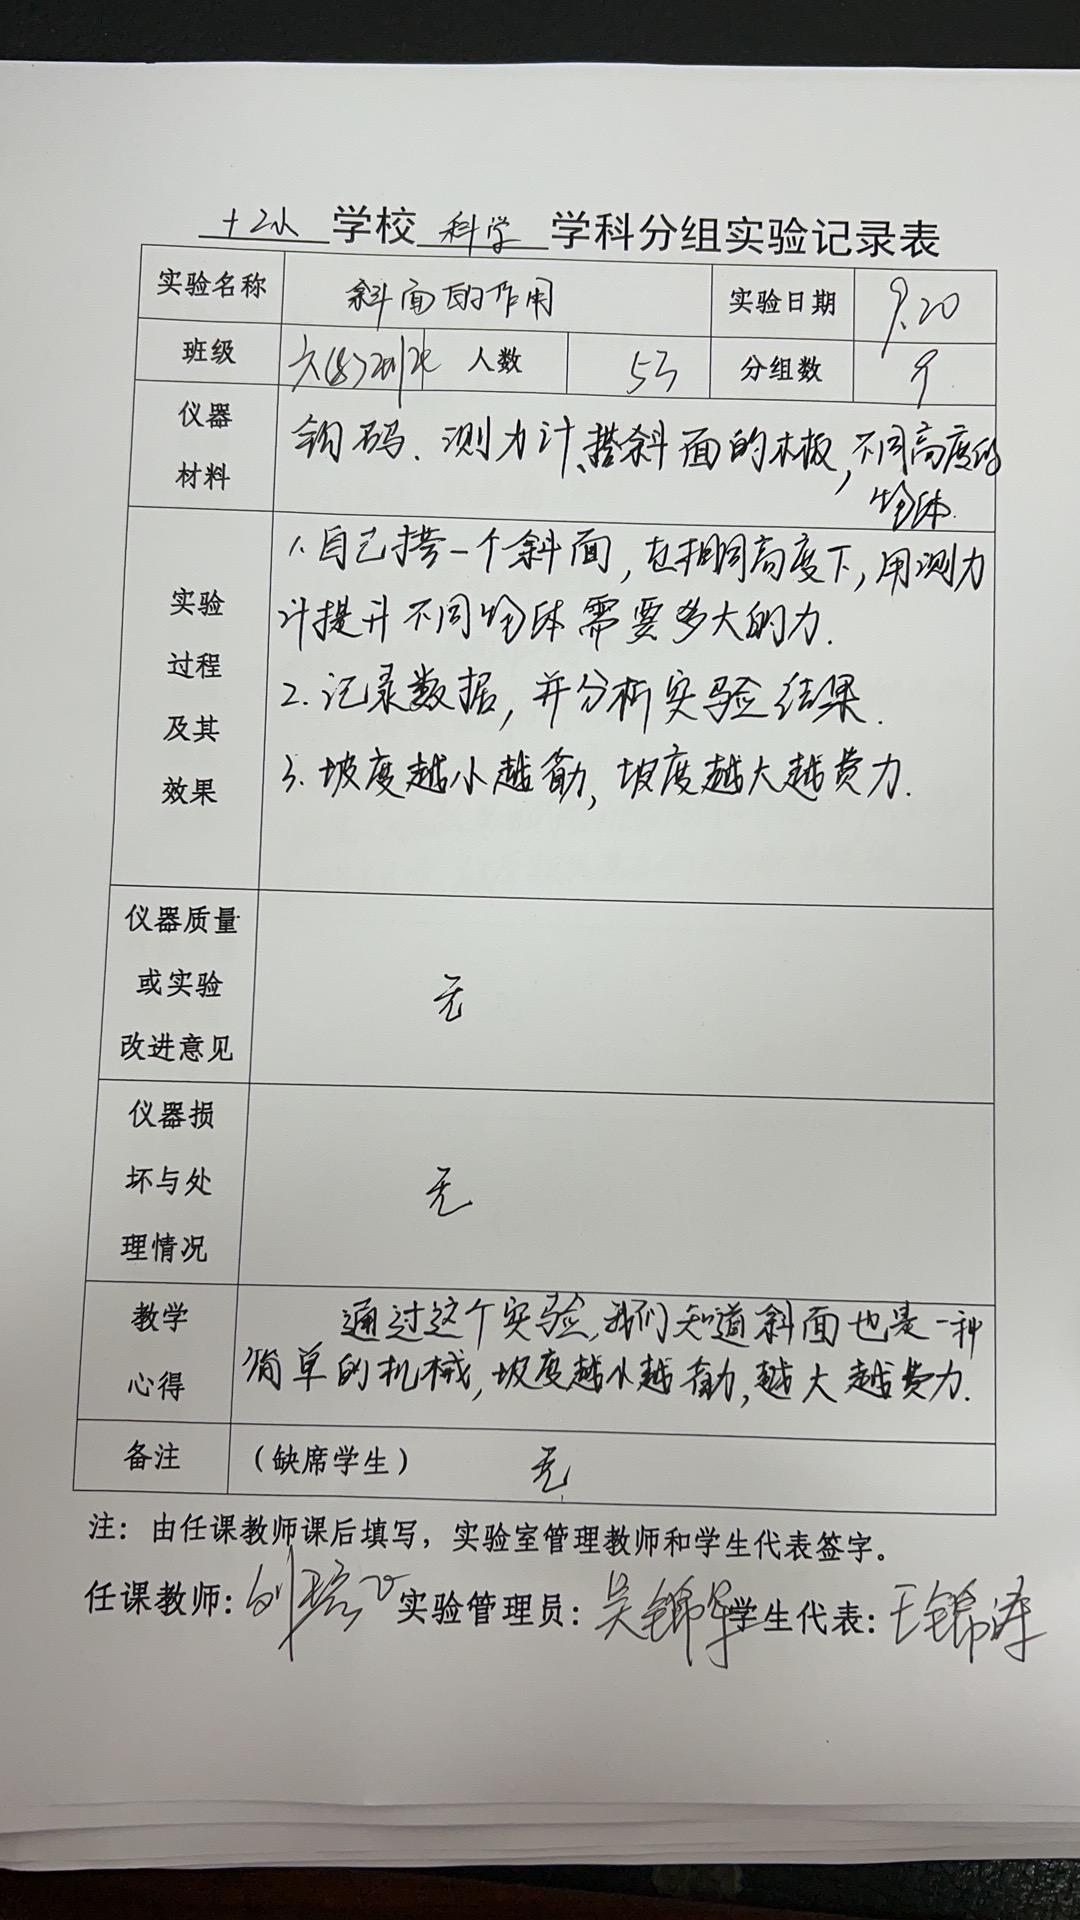 学校 科学 学科分组实验记录表
实验名称 斜面的作用 实验日期 9.20
班级 人数 53 分组数 9
仪器
材料
钩码、测力计、搭斜面的木板,不同高度的
物体.
实验
过程
及其
效果
1.自己搭一个斜面,在相同高度下,用测力
计提升不同物体需要多大的力.
2.记录数据,并分析实验结果.
3.坡度越小越省力,坡度越大越费力.
仪器质量
或实验
改进意见
无
仪器损
坏与处
理情况
无
教学
心得
通过这个实验,我们知道斜面也是一种
简单的机械,坡度越小越省力,越大越费力.
备注 (缺席学生) 无
注:由任课教师课后填写,实验室管理教师和学生代表签字。
任课教师: 实验管理员:吴锦华 学生代表:王锦涛